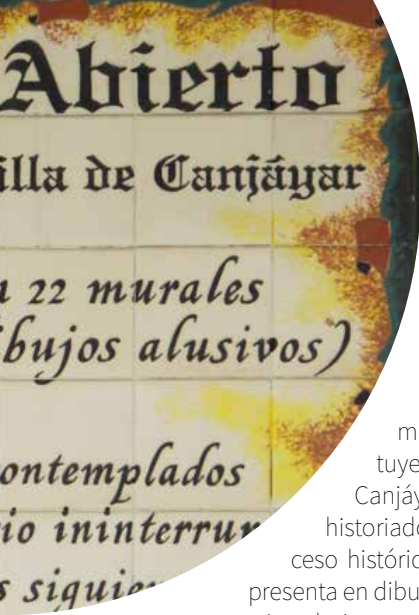 Abierto
illa de Canjáyar
n 22 murales
bujos alusivos)
ontemplados
io ininterrur
s siguie
m
tuye
Canjáy
historiado
ceso históric
presenta en dibu